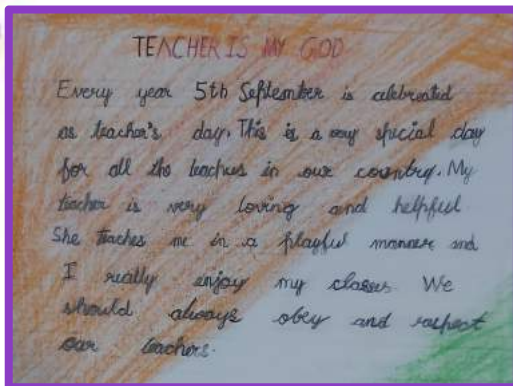 TEACHER IS MY GOD
Every year 5th September is celebrated
as teacher's day. This is a very special day
for all the teachers in our country. My
teacher is very loving and helpful
She teaches me in a playful manner and
I really enjoy my classes. We
should always obey and respect
our teachers.